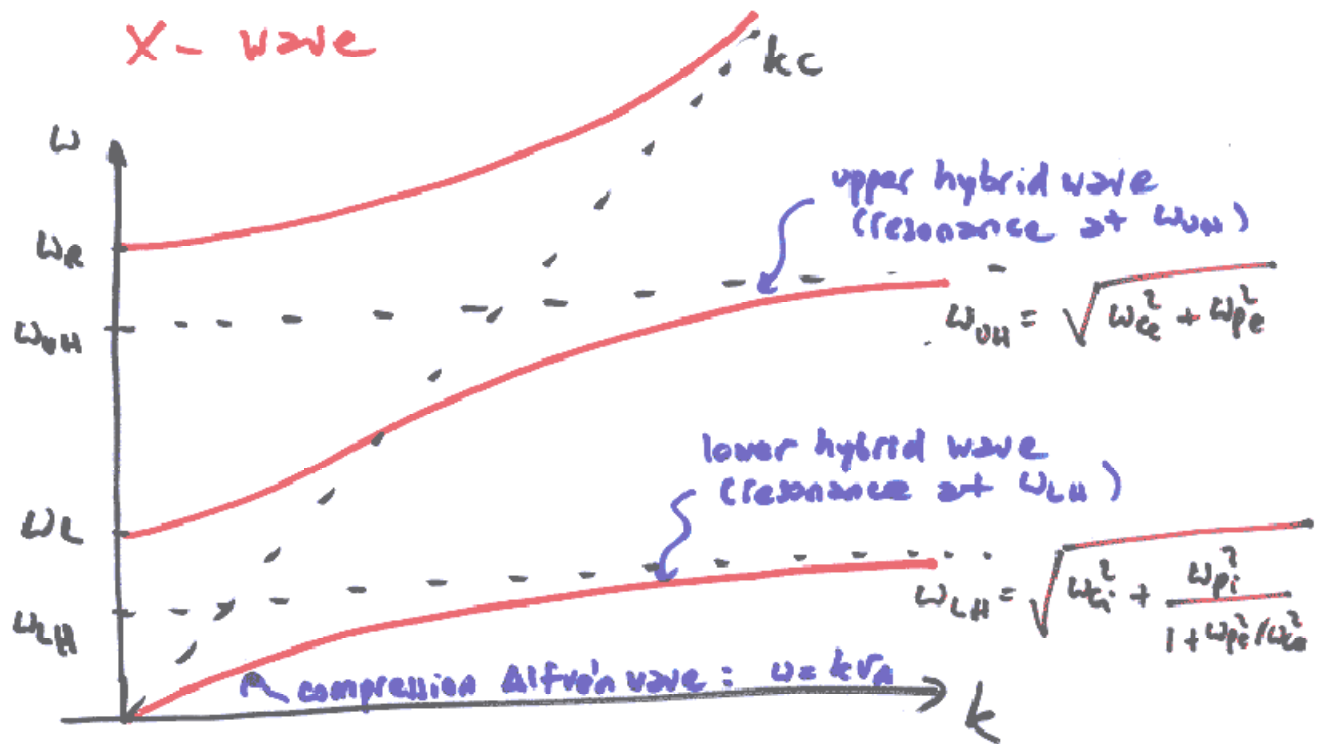 X - wave
kc
ω
upper hybrid wave
(resonance at ω_UH)
ω_R
ω_UH
ω_UH = √(ω_ce² + ω_pe²)
lower hybrid wave
(resonance at ω_LH)
ω_L
ω_LH
ω_LH = √(ω_ci² + ω_pi² / (1 + ω_pe²/ω_ce²))
compression Alfvén wave : ω = k v_A
k